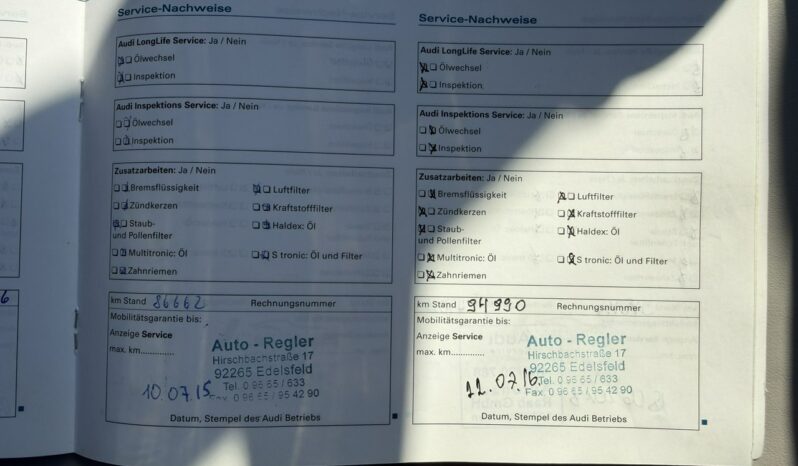 Service-Nachweise
Audi LongLife Service: Ja / Nein
Ölwechsel
Inspektion
Audi Inspektions Service: Ja / Nein
Ölwechsel
Inspektion
Zusatzarbeiten: Ja / Nein
Bremsflüssigkeit
Luftfilter
Zündkerzen
Kraftstofffilter
Staub-
und Pollenfilter
Haldex: Öl
Multitronic: Öl
S tronic: Öl und Filter
Zahnriemen
km Stand 86662 Rechnungsnummer
Mobilitätsgarantie bis:
Anzeige Service
max. km..............
Auto - Regler
Hirschbachstraße 17
92265 Edelsfeld
Tel. 0 96 65 / 633
Fax. 0 96 65 / 95 42 90
10.07.15
Datum, Stempel des Audi Betriebs
Service-Nachweise
Audi LongLife Service: Ja / Nein
Ölwechsel
Inspektion
Audi Inspektions Service: Ja / Nein
Ölwechsel
Inspektion
Zusatzarbeiten: Ja / Nein
Bremsflüssigkeit
Luftfilter
Zündkerzen
Kraftstofffilter
Staub-
und Pollenfilter
Haldex: Öl
Multitronic: Öl
S tronic: Öl und Filter
Zahnriemen
km Stand 94990 Rechnungsnummer
Mobilitätsgarantie bis:
Anzeige Service
max. km..............
Auto - Regler
Hirschbachstraße 17
92265 Edelsfeld
Tel. 0 96 65 / 633
Fax. 0 96 65 / 95 42 90
Datum, Stempel des Audi Betriebs